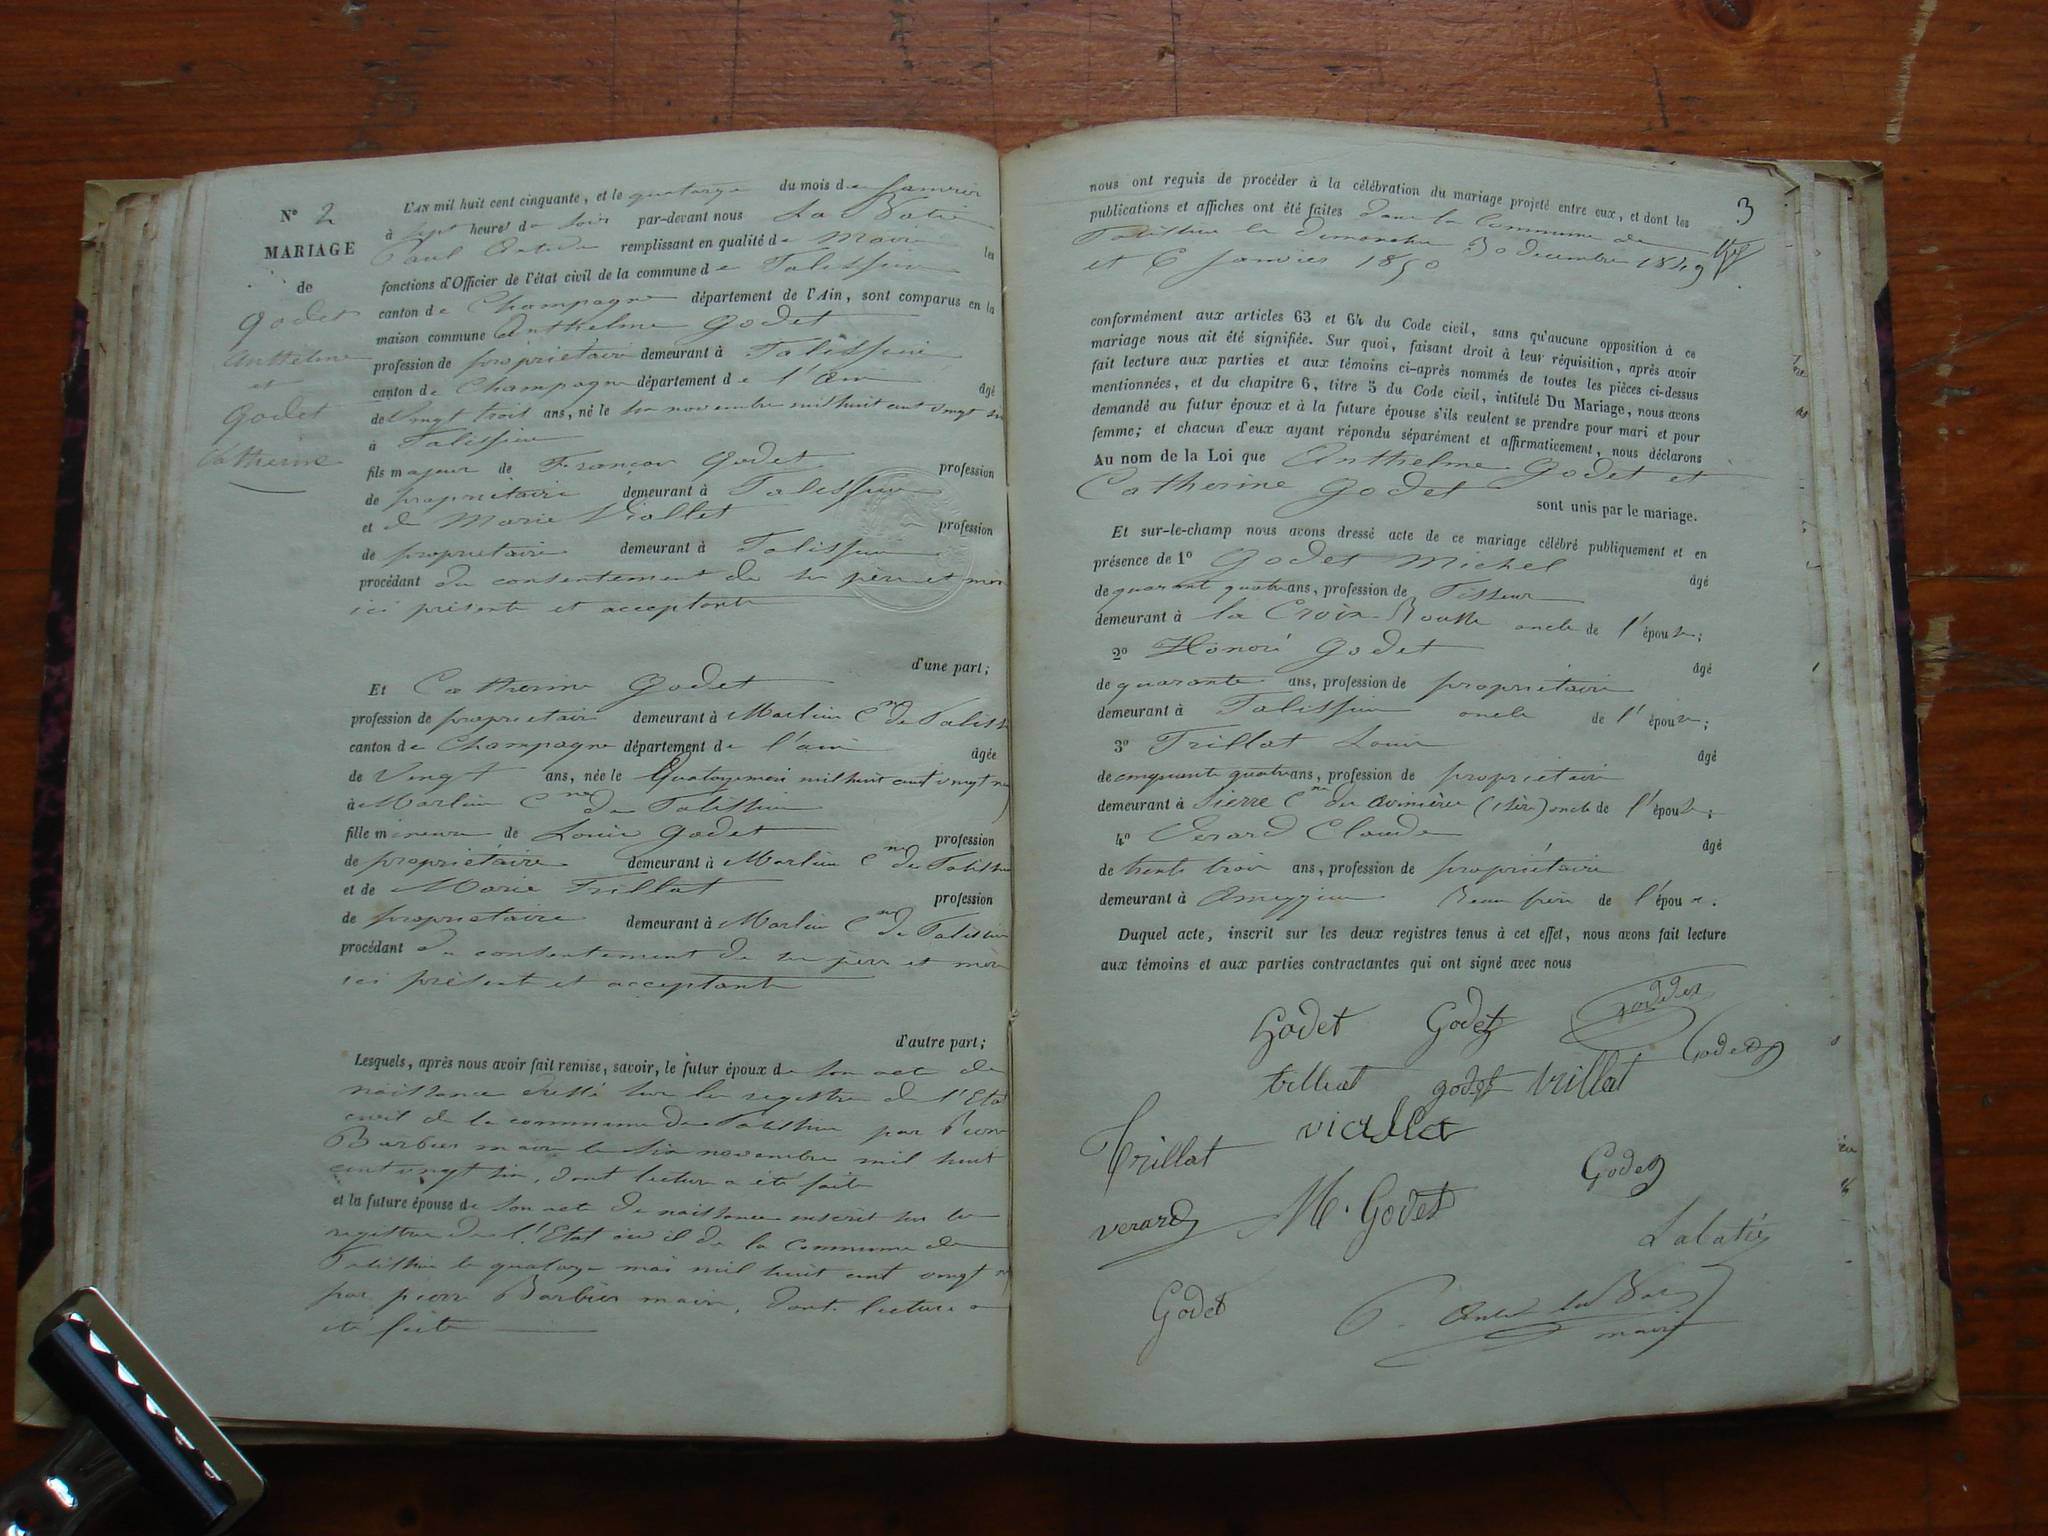 N° 2
MARIAGE
de
Godet
Anthelme
et
Godet
Catherine
L'AN mil huit cent cinquante, et le quatorze du mois de Janvier
à sept heures du soir par-devant nous La Batie
Paul remplissant en qualité de Maire les
fonctions d'Officier de l'état civil de la commune de Talissieu
canton de Champagne département de l'Ain, sont comparus en la
maison commune Anthelme Godet
profession de propriétaire demeurant à Talissieu
canton de Champagne département de l'Ain âgé
de vingt trois ans, né le six novembre mil huit cent vingt six
à Talissieu
fils majeur de François Godet profession
de propriétaire demeurant à Talissieu
et de Marie Viallet profession
de propriétaire demeurant à Talissieu
procédant du consentement de ses père et mère
ici présents et acceptants
d'une part;
Et Catherine Godet
profession de propriétaire demeurant à Marlieu Cne de Talissieu
canton de Champagne département de l'ain âgée
de vingt ans, née le Quatorze mai mil huit cent vingt
à Marlieu Cne de Talissieu
fille mineure de Louis Godet profession
de propriétaire demeurant à Marlieu Cne de Talissieu
et de Marie Trillat profession
de propriétaire demeurant à Marlieu Cne de Talissieu
procédant du consentement de ses père et mère
ici présent et acceptants
d'autre part;
Lesquels, après nous avoir fait remise, savoir, le futur époux de son acte de
naissance dressé sur les registres de l'Etat
civil de la commune de Talissieu par Pierre
Barbier maire le six novembre mil huit
cent vingt six, dont lecture a été faite
et la future épouse de son acte de naissance inscrit sur les
registres de l'Etat civil de la commune de
Talissieu le quatorze mai mil huit cent vingt
par pierre Barbier maire, dont lecture a
été faite
3
nous ont requis de procéder à la célébration du mariage projeté entre eux, et dont les
publications et affiches ont été faites dans la Commune de
Talissieu le dimanche 30 decembre 1849
et 6 Janvier 1850
conformément aux articles 63 et 64 du Code civil, sans qu'aucune opposition à ce
mariage nous ait été signifiée. Sur quoi, faisant droit à leur réquisition, après avoir
fait lecture aux parties et aux témoins ci-après nommés de toutes les pièces ci-dessus
mentionnées, et du chapitre 6, titre 5 du Code civil, intitulé Du Mariage, nous avons
demandé au futur époux et à la future épouse s'ils veulent se prendre pour mari et pour
femme; et chacun d'eux ayant répondu séparément et affirmativement, nous déclarons
Au nom de la Loi que Anthelme Godet et
Catherine Godet
sont unis par le mariage.
Et sur-le-champ nous avons dressé acte de ce mariage célébré publiquement et en
présence de 1° Godet Michel âgé
de quarante quatre ans, profession de Tisseur
demeurant à la Croix Rousse oncle de l'épouse;
2° Honoré Godet âgé
de quarante ans, profession de propriétaire
demeurant à Talissieu oncle de l'épouse;
3° Trillat Louis âgé
de cinquante quatre ans, profession de propriétaire
demeurant à Sierre Cne des Avenières (Isère) oncle de l'épouse;
4° Verard Claude âgé
de trente trois ans, profession de propriétaire
demeurant à Ameyzieu Beau frère de l'épouse.
Duquel acte, inscrit sur les deux registres tenus à cet effet, nous avons fait lecture
aux témoins et aux parties contractantes qui ont signé avec nous
Godet Godet
Godet
trillat godet trillat
viallet
Trillat
Godet
verard M. Godet
Labatie
Godet
maire